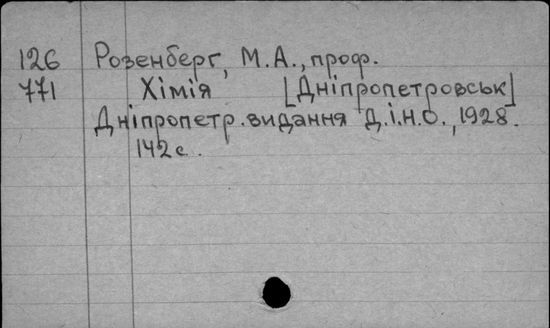 126 Розенберг, М.А., проф.
771 Хімія [Дніпропетровськ]
Дніпропетр. видання Д.І.Н.О., 1928.
142 с.